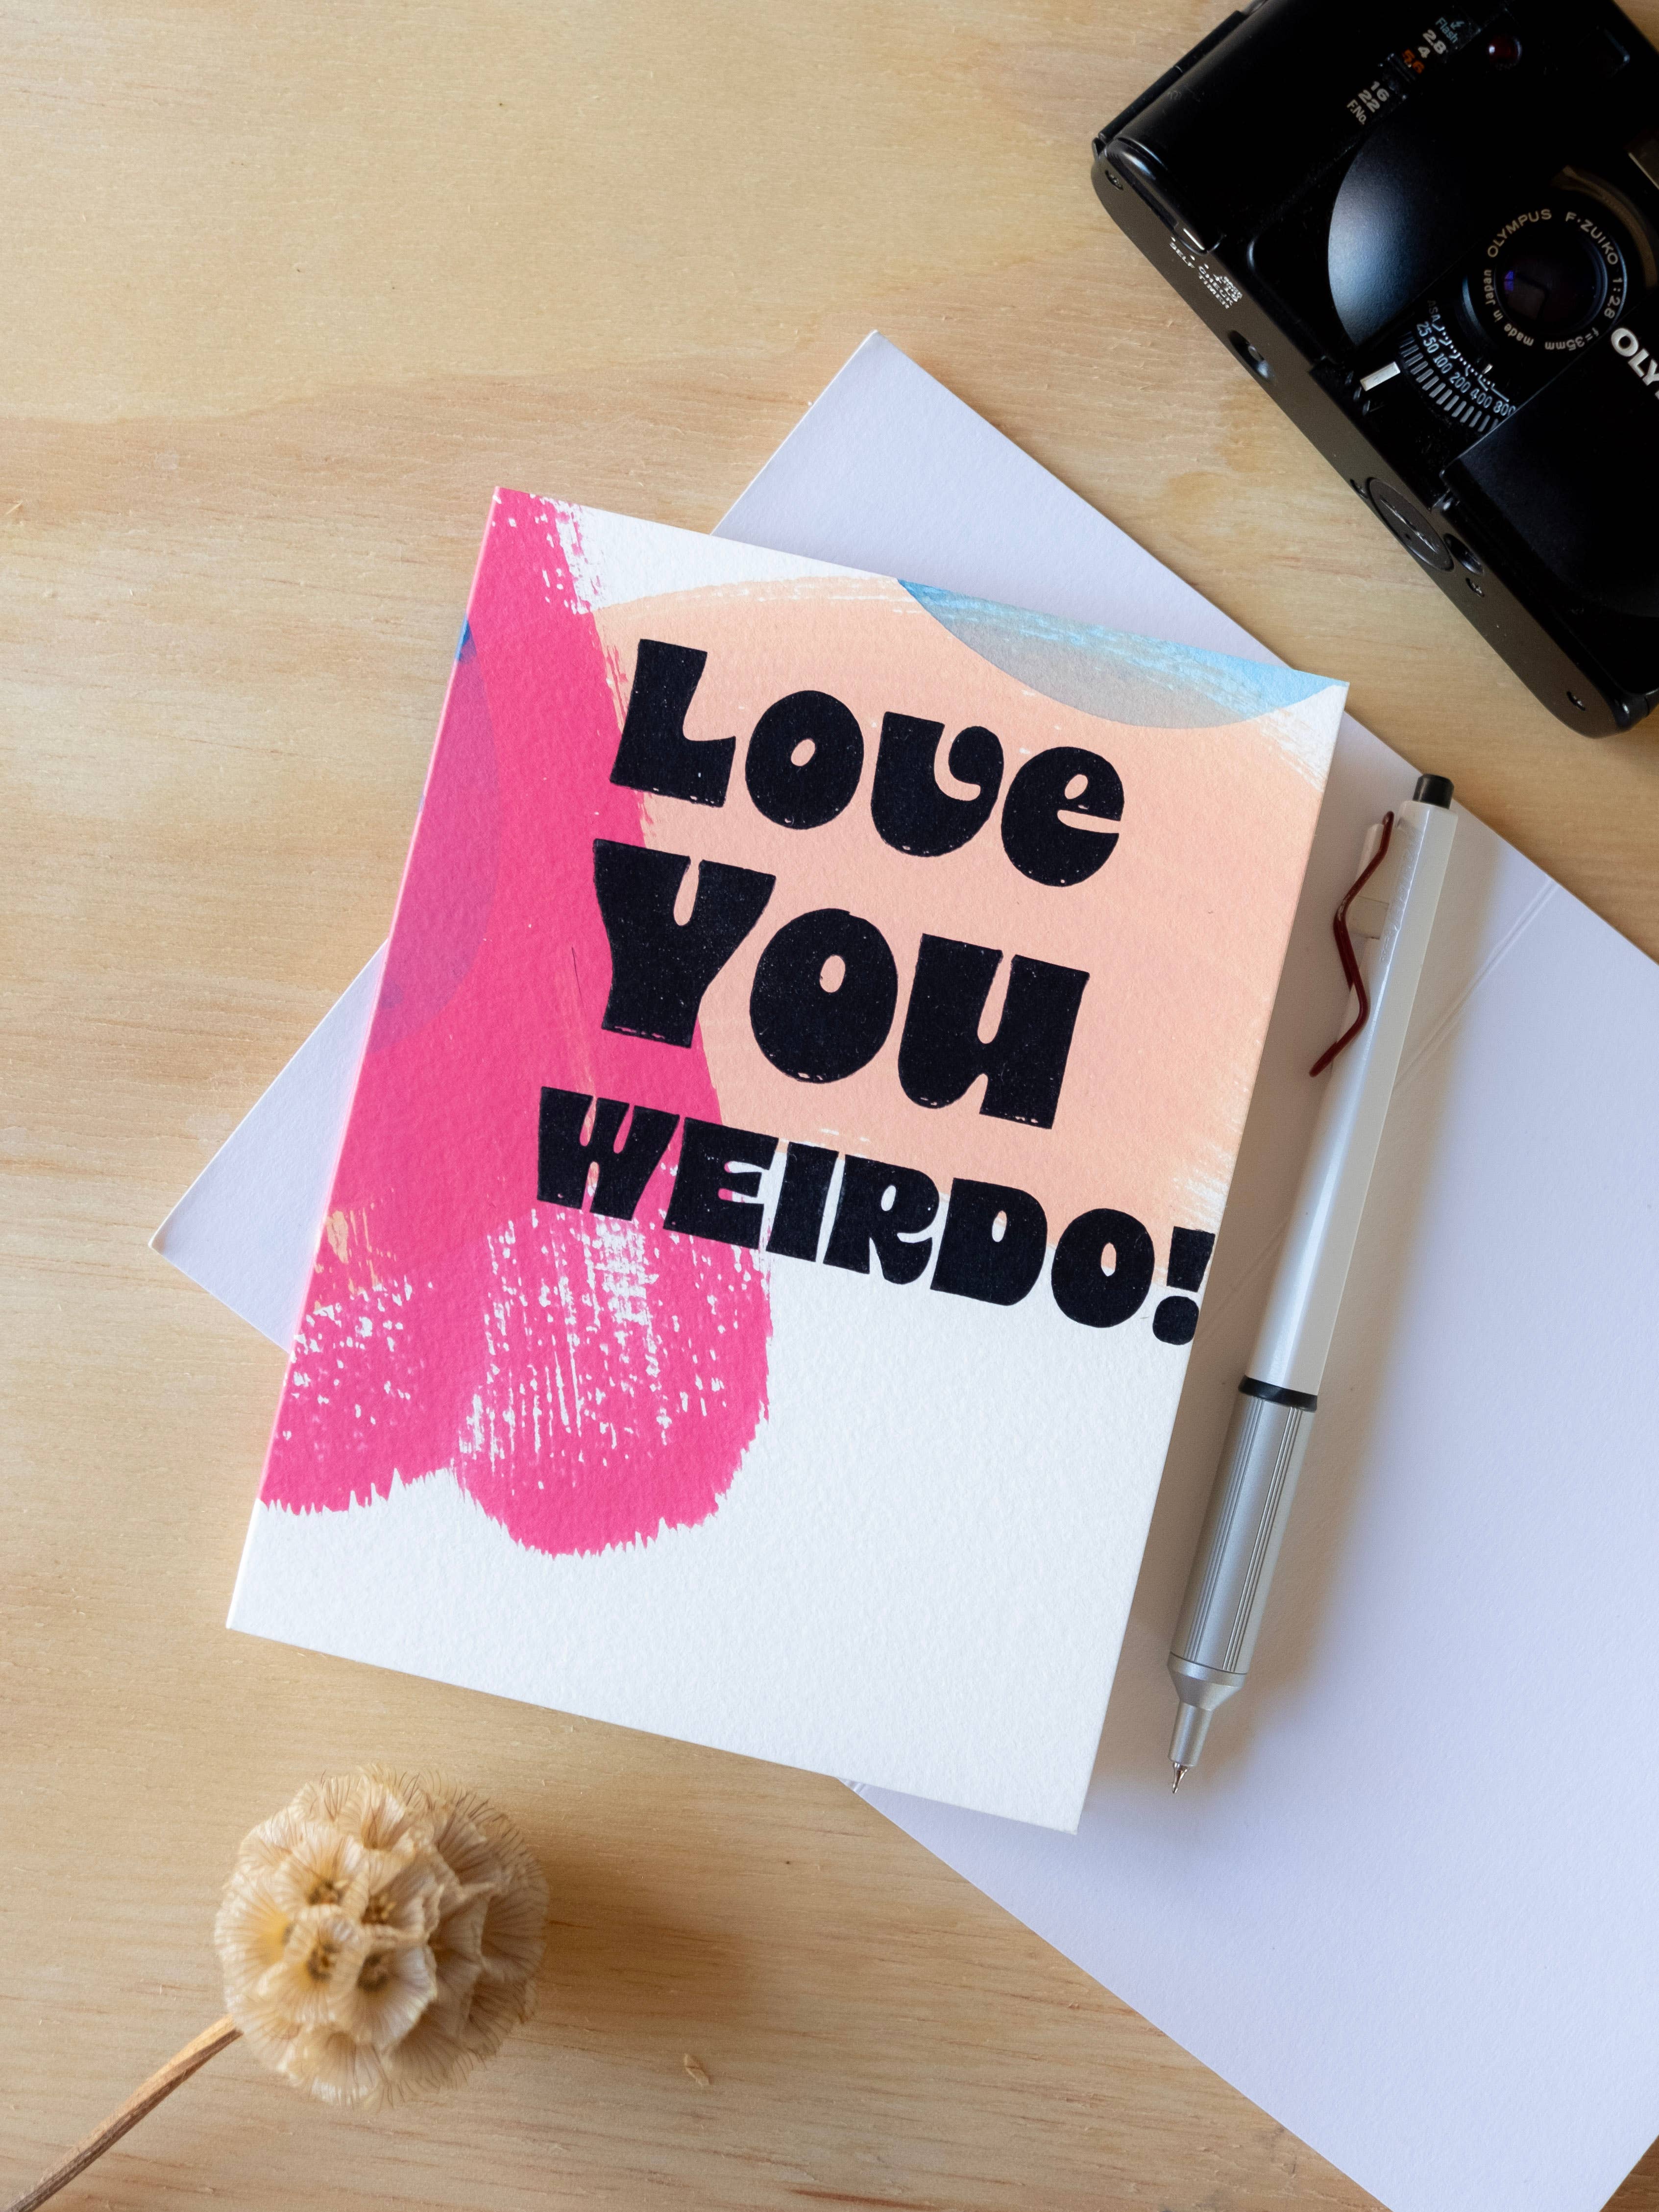 Flash
2.8
4
5.6
16
22
F.No.
OLYMPUS F·ZUIKO 1:2.8 f=35mm
made in Japan
ASA
25 50 100 200 400 800
OLY
SELF CHECK
TIMER
Love
You
WEIRDO!